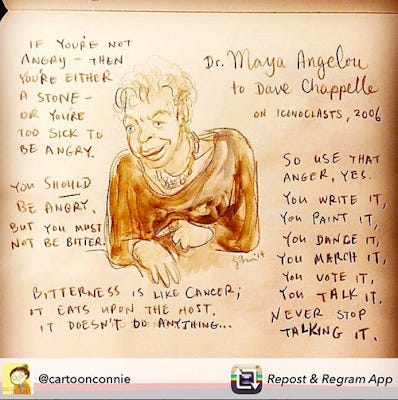 IF YOU'RE NOT
ANGRY - THEN
YOU'RE EITHER
A STONE -
OR YOU'RE
TOO SICK TO
BE ANGRY.
YOU SHOULD
BE ANGRY.
BUT YOU MUST
NOT BE BITTER.
BITTERNESS IS LIKE CANCER;
IT EATS UPON THE HOST.
IT DOESN'T DO ANYTHING...
Dr. Maya Angelou
to Dave Chappelle
ON ICONOCLASTS, 2006
SO USE THAT
ANGER, YES.
YOU WRITE IT,
YOU PAINT IT,
YOU DANCE IT,
YOU MARCH IT,
YOU VOTE IT,
YOU TALK IT.
NEVER STOP
TALKING IT.
@cartoonconnie
Repost & Regram App